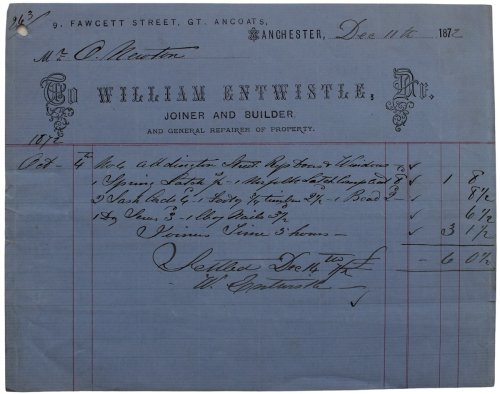 9, FAWCETT STREET, GT. ANCOATS,
MANCHESTER, Dec 11th 1872
Mr O. Newton
To WILLIAM ENTWISTLE, Dr.
JOINER AND BUILDER,
AND GENERAL REPAIRER OF PROPERTY.
1872
Oct 4th No 6 Addington Street Rep Doors & Windows
1 Spring Latch 1/- 1 Norfolk Latch Complete 8d 1 8
2 Sash Cords 4d 1 2½ 1 Bead 2 8½
1 Dz Screws 3 1 lb of Nails 3½ 6½
Joiners Time 5 hours 3 1½
6 0½
Settled Dec 14th /72
W. Entwistle